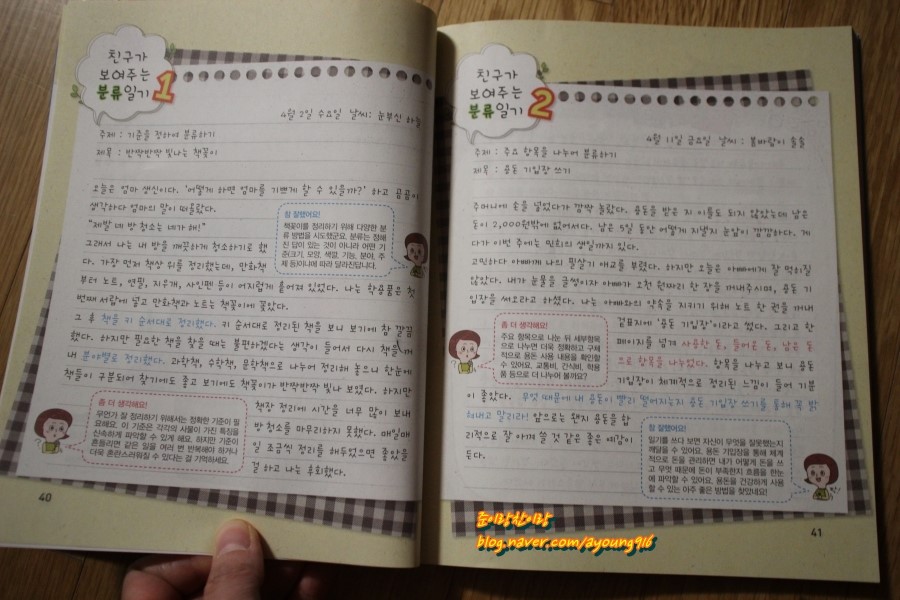 친구가
보여주는
분류일기 1
4월 2일 수요일 날씨: 눈부신 하늘
주제 : 기준을 정하여 분류하기
제목 : 반짝반짝 빛나는 책꽂이
오늘은 엄마 생신이다. '어떻게 하면 엄마를 기쁘게 할 수 있을까?' 하고 곰곰이
생각하다 엄마의 말이 떠올랐다.
"제발 네 방 청소는 네가 해!"
그래서 나는 내 방을 깨끗하게 청소하기로 했
다. 가장 먼저 책상 위를 정리했는데, 만화책
부터 노트, 연필, 지우개, 사인펜 등이 어지럽게 흩어져 있었다. 나는 학용품은 첫
번째 서랍에 넣고 만화책과 노트는 책꽂이에 꽂았다.
그 후 책을 키 순서대로 정리했다. 키 순서대로 정리된 책을 보니 보기에 참 깔끔
했다. 하지만 필요한 책을 찾을 때는 불편하겠다는 생각이 들어서 다시 책들을 꺼
내 분야별로 정리했다. 과학책, 수학책, 문학책으로 나누어 정리해 놓으니 한눈에
책들이 구분되어 찾기에도 좋고 보기에도 책꽂이가 반짝반짝 빛나 보였다. 하지만
책장 정리에 시간을 너무 많이 보내
방 청소를 마무리하지 못했다. 매일매
일 조금씩 정리를 해두었으면 좋았을
걸 하고 나는 후회했다.
참 잘했어요!
책꽂이를 정리하기 위해 다양한 분
류 방법을 시도했군요. 분류는 정해
진 답이 있는 것이 아니라 어떤 기
준(크기, 모양, 색깔, 기능, 분야, 주
제 등)이냐에 따라 달라진답니다.
좀 더 생각해요!
무언가 잘 정리하기 위해서는 정확한 기준이 필
요해요. 이 기준은 각각의 사물이 가진 특징을
신속하게 파악할 수 있게 해요. 하지만 기준이
흔들리면 같은 일을 여러 번 반복해야 하거나
더욱 혼란스러워질 수 있다는 걸 기억하세요.
40
친구가
보여주는
분류일기 2
4월 11일 금요일 날씨 : 봄바람이 솔솔
주제 : 주요 항목을 나누어 분류하기
제목 : 용돈 기입장 쓰기
주머니에 손을 넣었다가 깜짝 놀랐다. 용돈을 받은 지 이틀도 되지 않았는데 남은
돈이 2,000원밖에 없어서다. 남은 5일 동안 어떻게 지낼지 눈앞이 깜깜하다. 게
다가 이번 주에는 민희의 생일까지 있다.
고민하다 아빠께 나의 필살기 애교를 부렸다. 하지만 오늘은 아빠에게 잘 먹히질
않았다. 내가 눈물을 글썽이자 아빠가 오천 원짜리 한 장을 꺼내주시며, 용돈 기
입장을 써오라고 하셨다. 나는 아빠와의 약속을 지키기 위해 노트 한 권을 꺼내
겉표지에 '용돈 기입장'이라고 썼다. 그리고 한
페이지를 넘겨 사용한 돈, 들어온 돈, 남은 돈
으로 항목을 나누었다. 항목을 나누고 보니 용돈
기입장이 체계적으로 정리된 느낌이 들어 기분
이 좋았다. 무엇 때문에 내 용돈이 빨리 떨어지는지 용돈 기입장 쓰기를 통해 꼭 밝
혀내고 말리라! 앞으로는 왠지 용돈을 합
리적으로 잘 아껴 쓸 것 같은 좋은 예감이
든다.
좀 더 생각해요!
주요 항목으로 나눈 뒤 세부항목
으로 나누면 더욱 정확하고 구체
적으로 용돈 사용 내용을 확인할
수 있어요. 교통비, 간식비, 학용
품 등으로 더 나누어 볼까요?
참 잘했어요!
일기를 쓰다 보면 자신이 무엇을 잘못했는지
깨달을 수 있어요. 용돈 기입장을 통해 체계
적으로 돈을 관리하면 내가 어떻게 돈을 쓰
고 무엇 때문에 돈이 부족한지 흐름을 한눈
에 파악할 수 있어요. 용돈을 건강하게 사용
할 수 있는 아주 좋은 방법을 찾았네요!
41
준이랑찬이랑
blog.naver.com/ayoung916